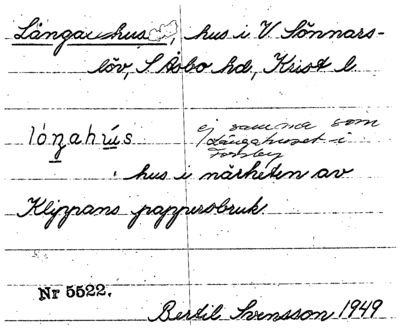 Långahus, hus i V Sönnars-
löv, S Åsbo hd, Krist l.
lóŋahús
ej samma som
Långahuset i
Forsby
hus i närheten av
Klippans pappersbruk.
Nr 5522.
Bertil Svensson 1949